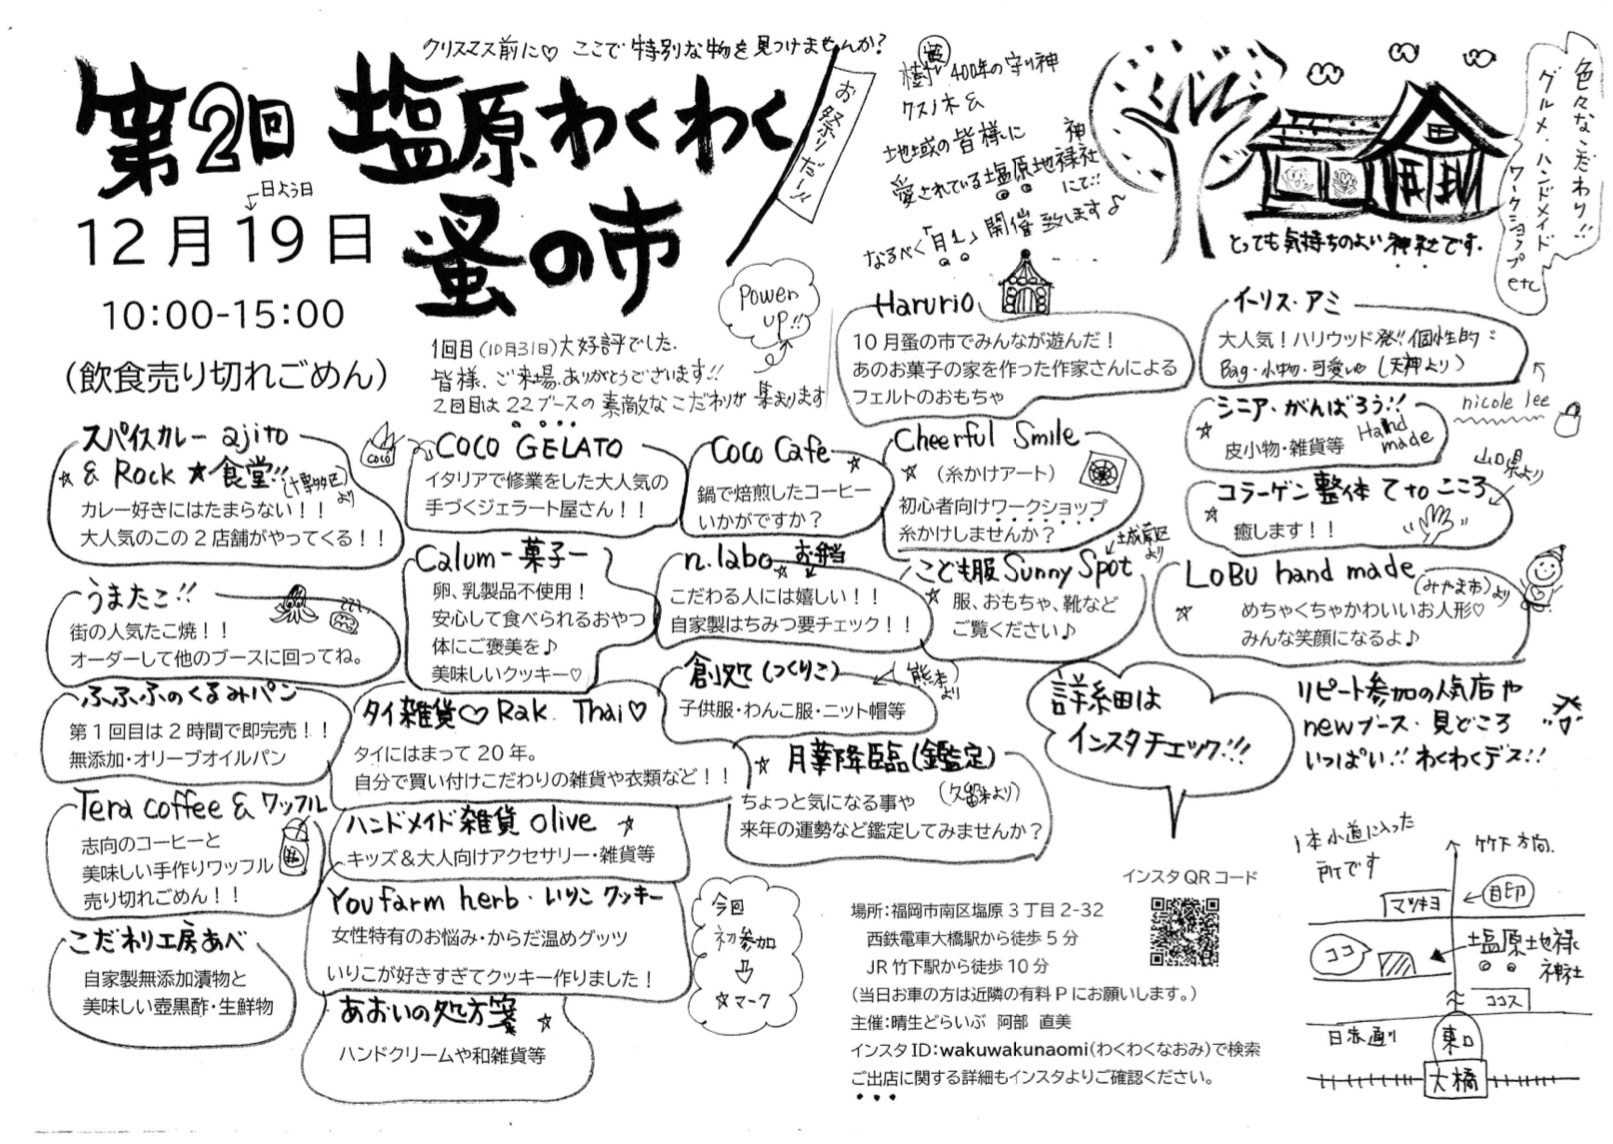 クリスマス前に♡ ここで特別な物を見つけませんか?
第2回 塩原わくわく
蚤の市
お祭りだー!!
←日よう日
12月19日
10:00-15:00
(飲食売り切れごめん)
1回目(10月31日)大好評でした.
皆様、ご来場、ありがとうございます!!
2回目は22ブースの素敵なこだわりが集まります
Power
up!!
樹齢400年の守り神
クスノ木&
地域の皆様に
愛されている塩原地禄神社
にて!!
なるべく「月1」開催致します♪
とっても気持ちのよい神社です.
色々なこだわり!!
グルメ・ハンドメイド
ワークショップ
etc
Harurio
10月蚤の市でみんなが遊んだ!
あのお菓子の家を作った作家さんによる
フェルトのおもちゃ
イーリス・アミ
大人気!ハリウッド発!!個性的:
Bag・小物・可愛い♡(天神より)
nicole lee
シニア・がんばろう!!
☆ 皮小物・雑貨等 Hand
made
山口県より
コラーゲン整体 てto こころ
☆ 癒します!!
スパイスカレー ajito
☆ & Rock ★食堂!!(博多区より)
カレー好きにはたまらない!!
大人気のこの2店舗がやってくる!!
coco
COCO GELATO
イタリアで修業をした大人気の
手づくジェラート屋さん!!
Coco Cafe ☆
鍋で焙煎したコーヒー
いかがですか?
Cheerful Smile
☆ (糸かけアート)
初心者向けワークショップ
糸かけしませんか?
うまたこ!!
街の人気たこ焼!!
オーダーして他のブースに回ってね。
Calum-菓子-
卵、乳製品不使用!
安心して食べられるおやつ
体にご褒美を♪
美味しいクッキー♡
n.labo お弁当
☆
こだわる人には嬉しい!!
自家製はちみつ要チェック!!
城南区より
こども服 Sunny Spot
☆ 服、おもちゃ、靴など
ご覧ください♪
LOBU hand made (みやま市)より
☆ めちゃくちゃかわいいお人形♡
みんな笑顔になるよ♪
ふふふのくるみパン
第1回目は2時間で即完売!!
無添加・オリーブオイルパン
タイ雑貨♡Rak Thai♡
タイにはまって20年。
自分で買い付けこだわりの雑貨や衣類など!!
創処て(つくりこ) ←(熊本より)
子供服・わんこ服・ニット帽等
☆ 月華降臨(鑑定)
(久留米より)
ちょっと気になる事や
来年の運勢など鑑定してみませんか?
詳細は
インスタチェック!!!
リピート参加の人気店や
newブース・見どころ
いっぱい!!わくわくデス!!
Tera coffee & ワッフル
志向のコーヒーと
美味しい手作りワッフル
売り切れごめん!!
ハンドメイド雑貨 olive ☆
キッズ&大人向けアクセサリー・雑貨等
You farm herb・いりこクッキー
女性特有のお悩み・からだ温めグッツ
いりこが好きすぎてクッキー作りました!
こだわり工房あべ
自家製無添加漬物と
美味しい壺黒酢・生鮮物
あおいの処方箋 ☆
ハンドクリームや和雑貨等
今回
初参加
⇩
☆マーク
インスタQRコード
場所:福岡市南区塩原3丁目2-32
西鉄電車大橋駅から徒歩5分
JR竹下駅から徒歩10分
(当日お車の方は近隣の有料Pにお願いします。)
主催:晴生どらいぶ 阿部 直美
インスタID:wakuwakunaomi(わくわくなおみ)で検索
ご出店に関する詳細もインスタよりご確認ください。
1本小道に入った
所です
竹下方向.
マツキヨ
←目印
ココ
塩原地禄
神社
ココス
日赤通り
東口
大橋